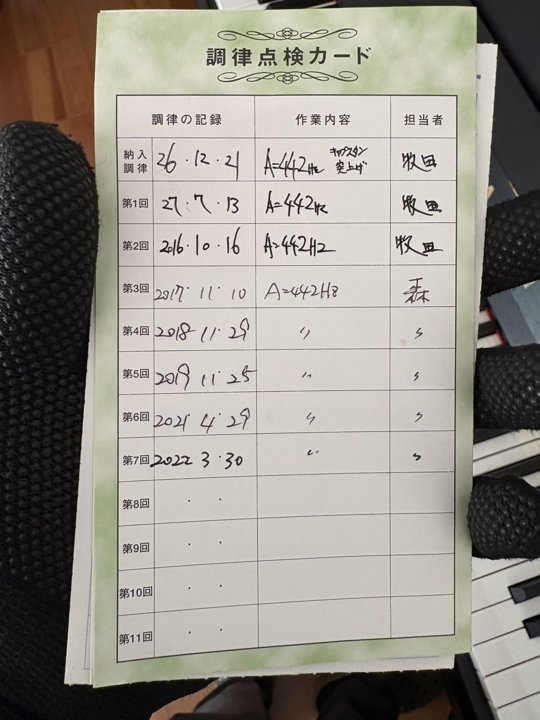 調律点検カード
調律の記録 作業内容 担当者
納入調律 26・12・21 A=442Hz キャプスタン突上げ 牧田
第1回 27・7・13 A=442Hz 牧田
第2回 2016・10・16 A=442HZ 牧田
第3回 2017・11・10 A=442HZ 森
第4回 2018・11・29 〃 〃
第5回 2019・11・25 〃 〃
第6回 2021・4・29 〃 〃
第7回 2022・3・30 〃 〃
第8回 ・ ・
第9回 ・ ・
第10回 ・ ・
第11回 ・ ・